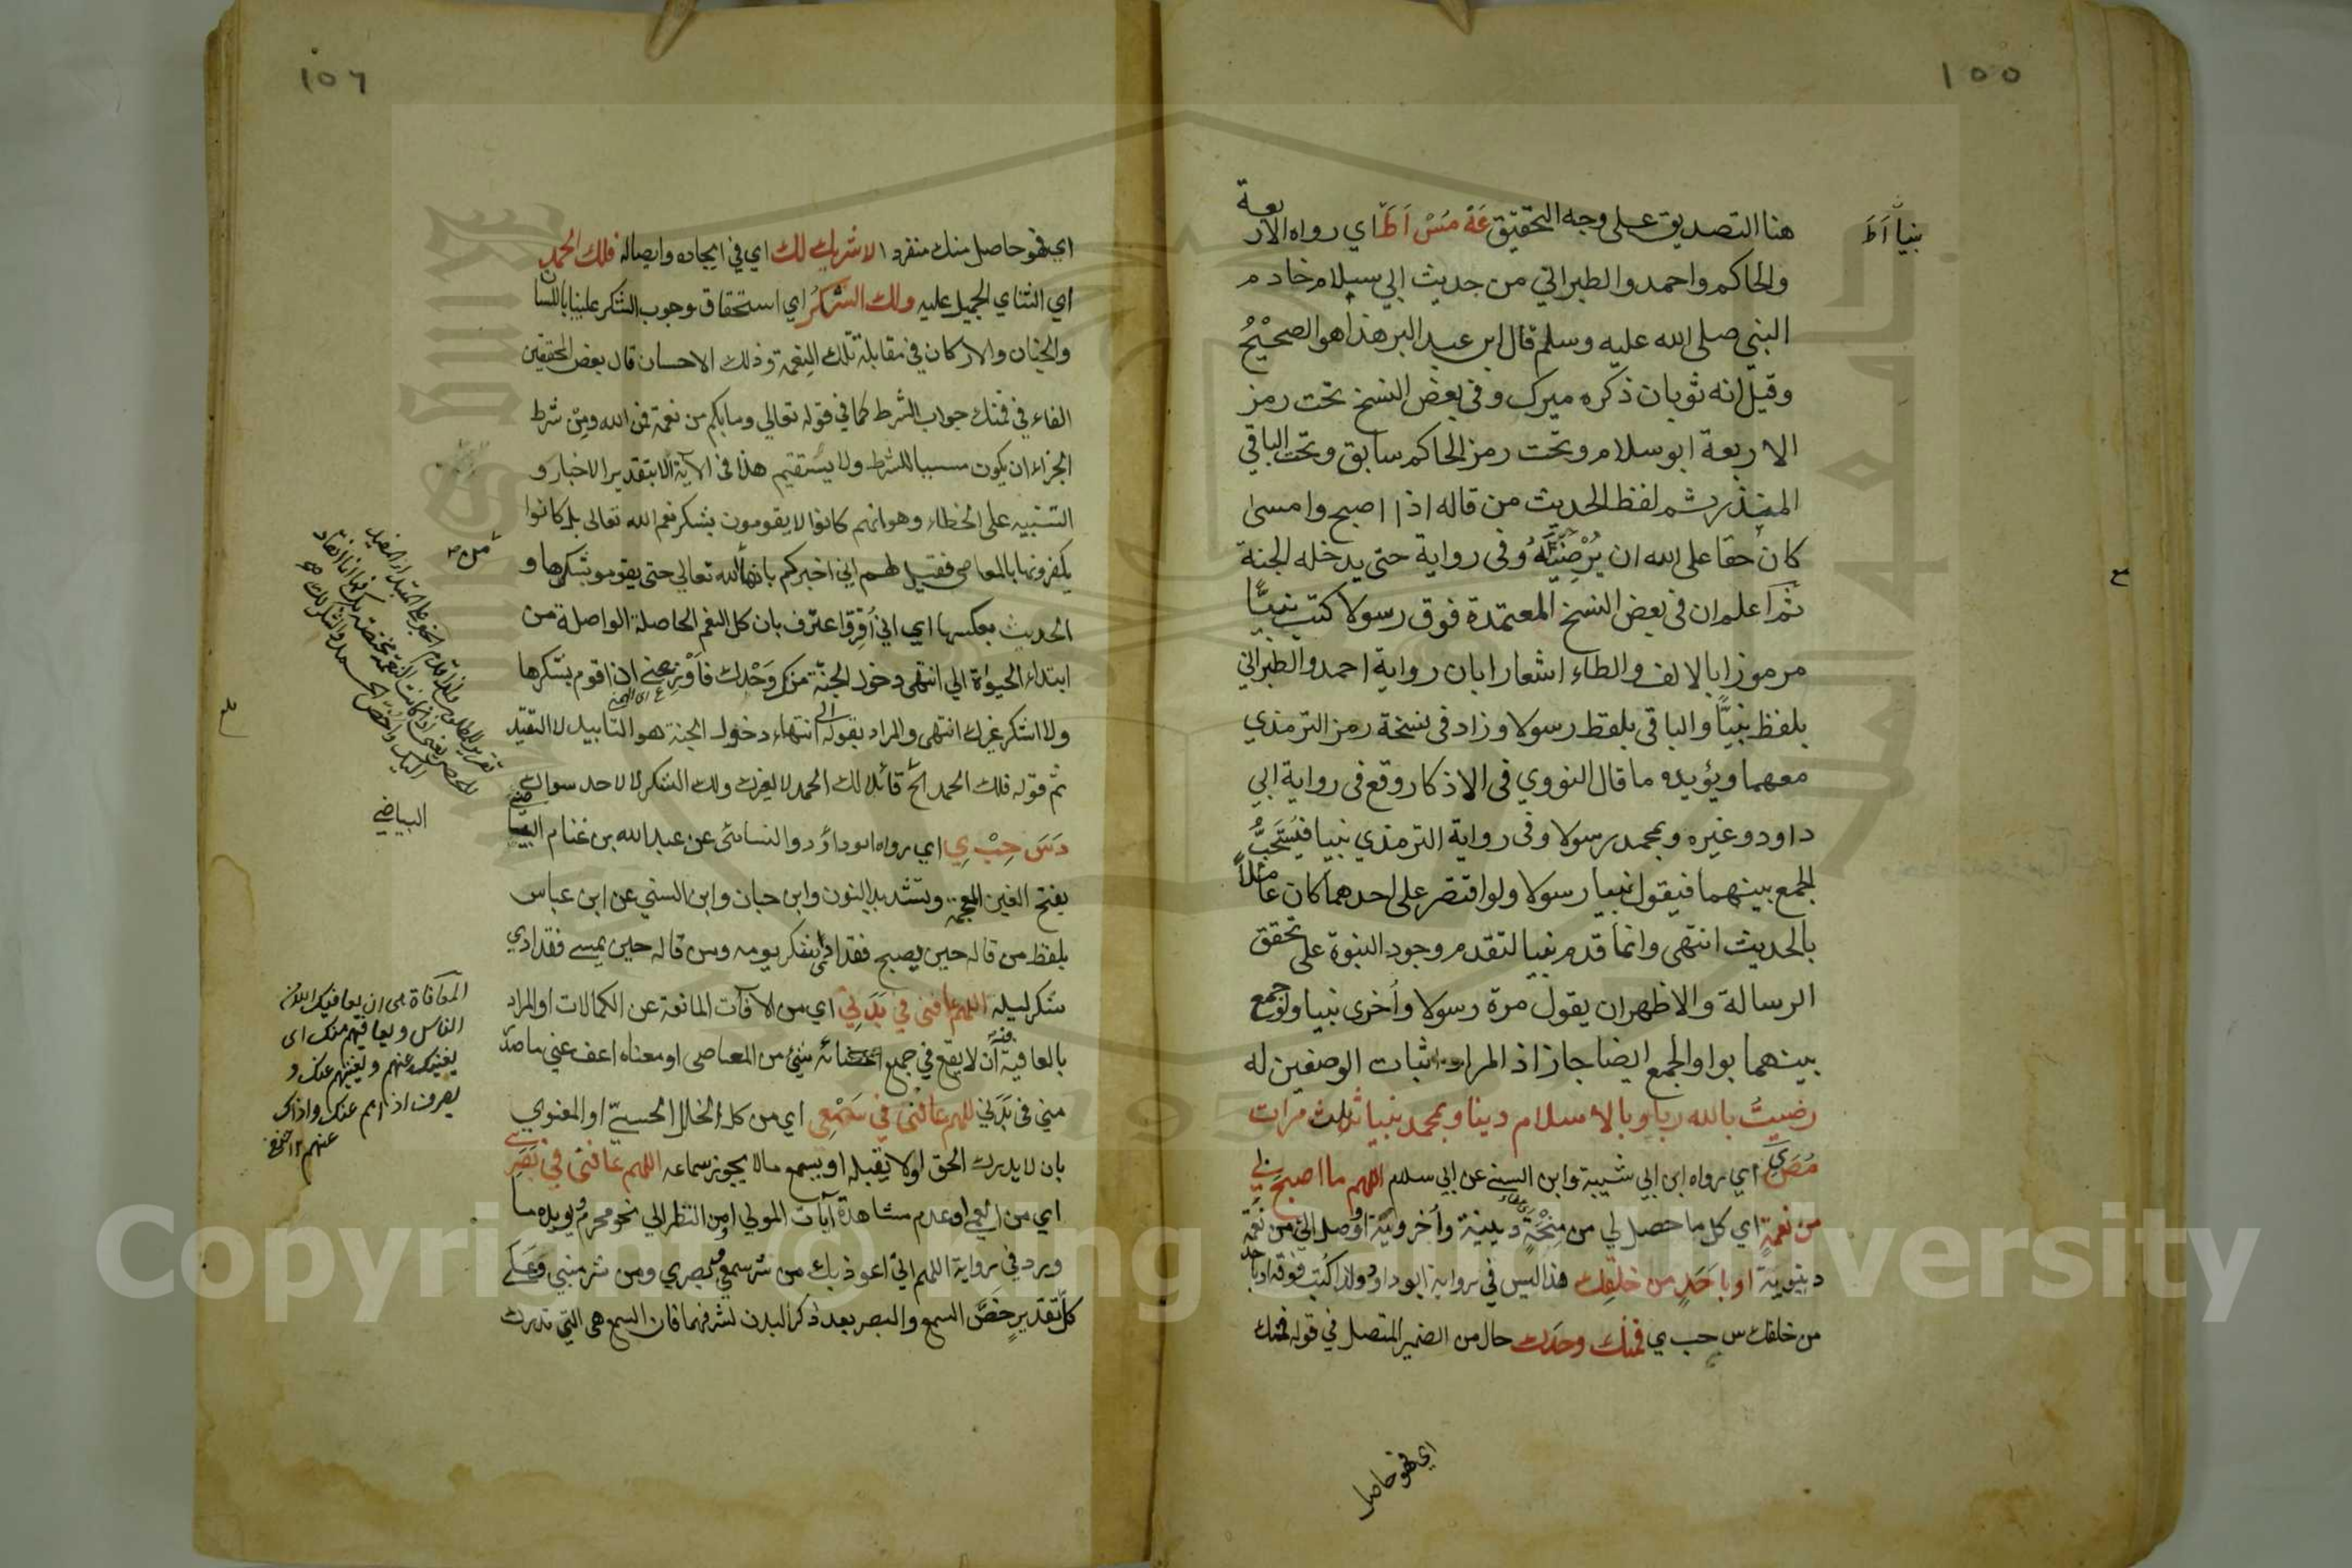 ١٥٥
نبيا اَ طَ
هنا التصديق على وجه التحقيق عَهْ مَسْ اَ طَ اي رواه الاربعة
والحاكم واحمد والطبراني من حديث ابي سلام خادم
النبي صلى الله عليه وسلم قال ابن عبد البر هذا هو الصحيْحُ
وقيل انه ثوبان ذكره ميرك وفي بعض النسخ تحت رمز
الاربعة ابو سلام وتحت رمز الحاكم سابق وتحت الباقي
المنذر ثم لفظ الحديث من قاله اذا اصبح وامسى
كان حقا على الله ان يُرْضِيَهُ وفي رواية حتى يدخله الجنة
ثم اعلم ان في بعض النسخ المعتمدة فوق رسولا كتب نبيًّا
مرموزا بالالف والطاء اشعارا بان رواية احمد والطبراني
بلفظ نبيًّا والباقي بلفظ رسولا وزاد في نسخة رمز الترمذي
معهما ويؤيده ما قال النووي في الاذكار وقع في رواية ابي
داود وغيره وبمحمد رسولا وفي رواية الترمذي نبيا فيُستَحَبُّ
الجمع بينهما فيقول نبيا رسولا ولو اقتصر على احدهما كان عاملاً
بالحديث انتهى وانما قدم نبيا لتقدم وجود النبوة على تحقق
الرسالة والاظهر ان يقول مرة رسولا وأخرى نبيا ولو جمع
بينهما بواو الجمع ايضا جاز اذ المراد اثبات الوصفين له
رضيتُ بالله ربا وبالاسلام دينا وبمحمد نبيا ثلث مرات
مُصَ يِ اي رواه ابن ابي شيبة وابن السني عن ابي سلام اللهم ما اصبح بي
من نعمةٍ اي كل ما حصل لي من مِنْحَةٍ دينية وأخروية او وصل الي من نعمة
دنيوية او باَحَدٍ من خلقِك هذا ليس في رواية ابو داود ولذا كُتِب فوقه او باحد
من خلقك س حب ي فمنْك وحدَك حال من الضمير المتصل في قوله فمنك
اي فهو حاصل
١٥٦
اي فهو حاصل منك منفردا لا شريك لك اي في ايجاده وايصاله فلك الحمد
اي الثناي الجميل عليه ولك الشكرُ اي استحقاق وجوب الشكر علينا باللسان
والجنان والاركان في مقابلة تلك النعمة وذلك الاحسان قال بعض المحققين
الفاء في فمنك جواب الشرط كما في قوله تعالي وما بكم من نعمة فمن الله ومن شرط
الجزاء ان يكون مسببا للشرط ولا يستقيم هذا في الآية الا بتقدير الاخبار و
التنبيه على الخطاء وهو انهم كانوا لا يقومون بشكر نعم الله تعالى بل كانوا
يكفرونها بالمعاصي فقيل لهم اني اخبركم بانها من الله تعالي حتى يقوموا بشكرها و
الحديث بعكسها اي اني أُقِرّ واعترف بان كل النعم الحاصلة الواصلة من
ابتداء الحيوة الي انتهى دخول الجنّة منك وَحْدَك فاَوْزِعني ان اقوم بشكرها
ولا اشكر غيرك انتهى والمراد بقوله الي انتهاء دخول الجنة هو التأبيد لا التقيّد
ثم قوله فلك الحمد الخ قائلا لك الحمد لا لغيرك ولك الشكر لا لاحد سواك
دَسَ حِبْ يِ اي رواه ابو داؤد والنسائى عن عبد الله بن غنام البياضي
بفتح الغين المعجمة وتشديد النون وابن حبان وابن السني عن ابن عباس
بلفظ من قاله حين يصبح فقد ادى شكر يومه ومن قاله حين يمسي فقد ادي
شكر ليلِه اللهم عافني في بَدَني اي من الآفات المانعة عن الكمالات او المراد
بالعافية أن لا يقع في جميع اعضائه شيئ من المعاصى او معناه اعف عني ما صدر
مني في بَدَني اللهم عافني في سَمْعِي اي من كل الخلل الحسيّ او المعنوي
بان لا يدرك الحق او لا يقبله او يسمع ما لا يجوز سماعه اللهم عافني في بَصَرِي
اي من العمى او عدم مشاهدة آيات المولي او من النظر الي نحو محرم ويؤيده ما
ورد في رواية اللهم اني اعوذ بك من شر سمعي وبصري ومن شر منيي وعلى
كل تقديرٍ خَصَّ السمع والبصر بعد ذكر البدن لشرفهما فان السمع هي التي تدرك
البياضي
المعافاة هى ان يعافيك الله من
الناس ويعافيهم منك اى
يغنيك عنهم ويغنيهم عنك و
يصرف اذاهم عنك واذاك
عنهم